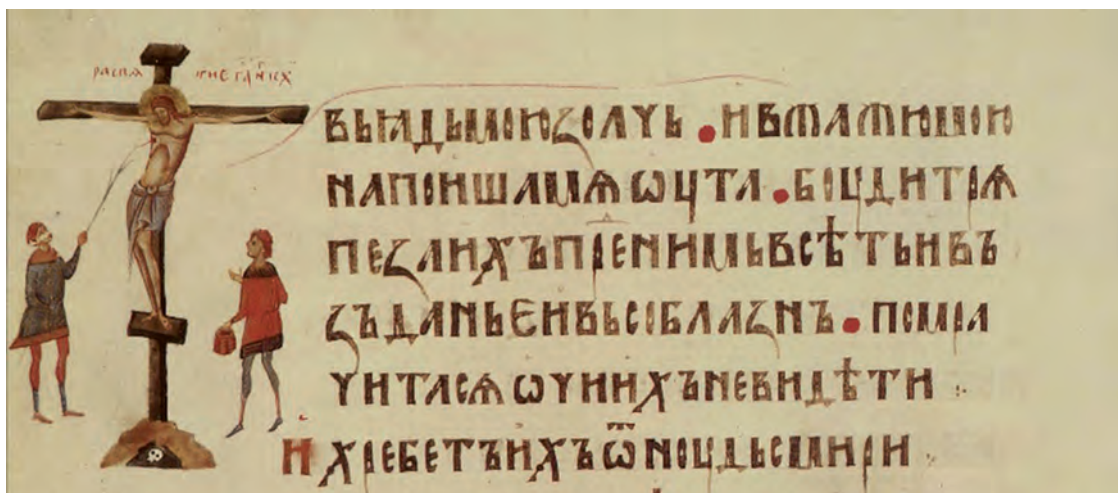 распѧ
вьꙗдьмоюзолчь . ивжажюмою
напоишамѧѡцта . боудитрѧ
пезаихъпреⷣнимьвсѣтьивъ
зъданьєивьсоблазнъ . помра
читасѧѡчиихъневидѣти ⁘
ихребетъихъѿноудьсмири ⁘